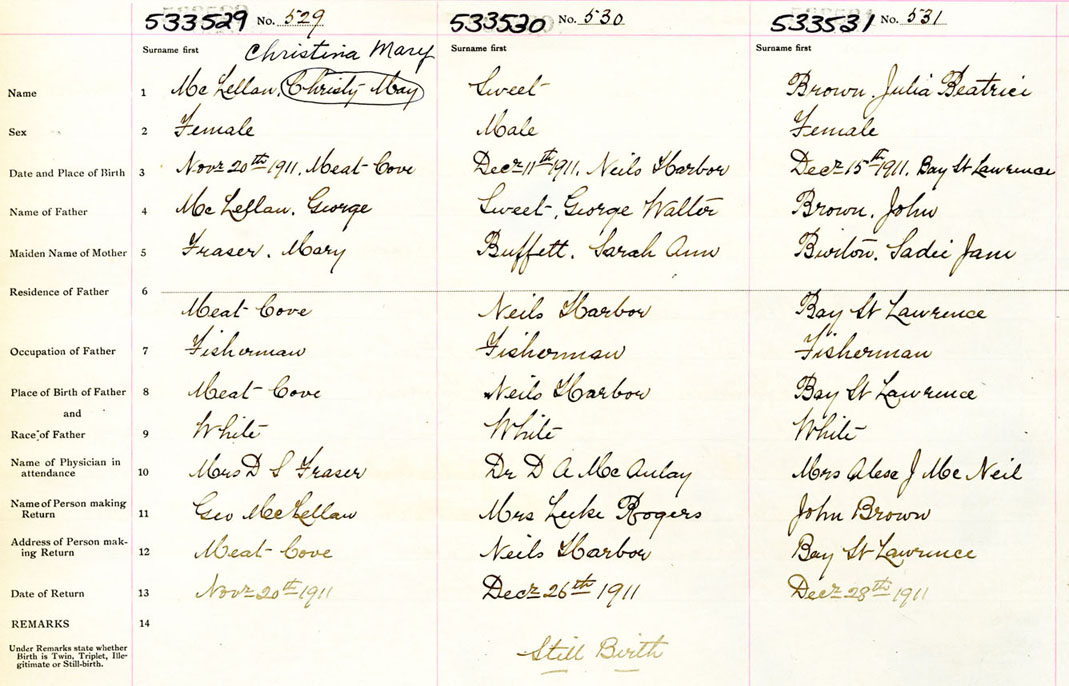 533529 No. 529 533530 No. 530 533531 No. 531
Surname first Christina Mary Surname first Surname first
Name 1 Mc Lellan, Christy May Sweet Brown, Julia Beatrice
Sex 2 Female Male Female
Date and Place of Birth 3 Novr 20th 1911, Meat Cove Decr 11th 1911, Neils Harbor Decr 15th 1911, Bay St Lawrence
Name of Father 4 Mc Lellan, George Sweet, George Walter Brown, John
Maiden Name of Mother 5 Fraser, Mary Buffett, Sarah Ann Burton, Sadie Jane
Residence of Father 6
Meat Cove Neils Harbor Bay St Lawrence
Occupation of Father 7 Fisherman Fisherman Fisherman
Place of Birth of Father 8 Meat Cove Neils Harbor Bay St Lawrence
and
Race of Father 9 White White White
Name of Physician in
attendance 10 Mrs D S Fraser Dr D A Mc Aulay Mrs J Mc Neil
Name of Person making
Return 11 Geo McLellan Mrs Luke Rogers John Brown
Address of Person mak-
ing Return 12 Meat Cove Neils Harbor Bay St Lawrence
Date of Return 13 Novr 20th 1911 Decr 26th 1911 Decr 28th 1911
REMARKS 14
Under Remarks state whether
Birth is Twin, Triplet, Ille-
gitimate or Still-birth.
Still Birth